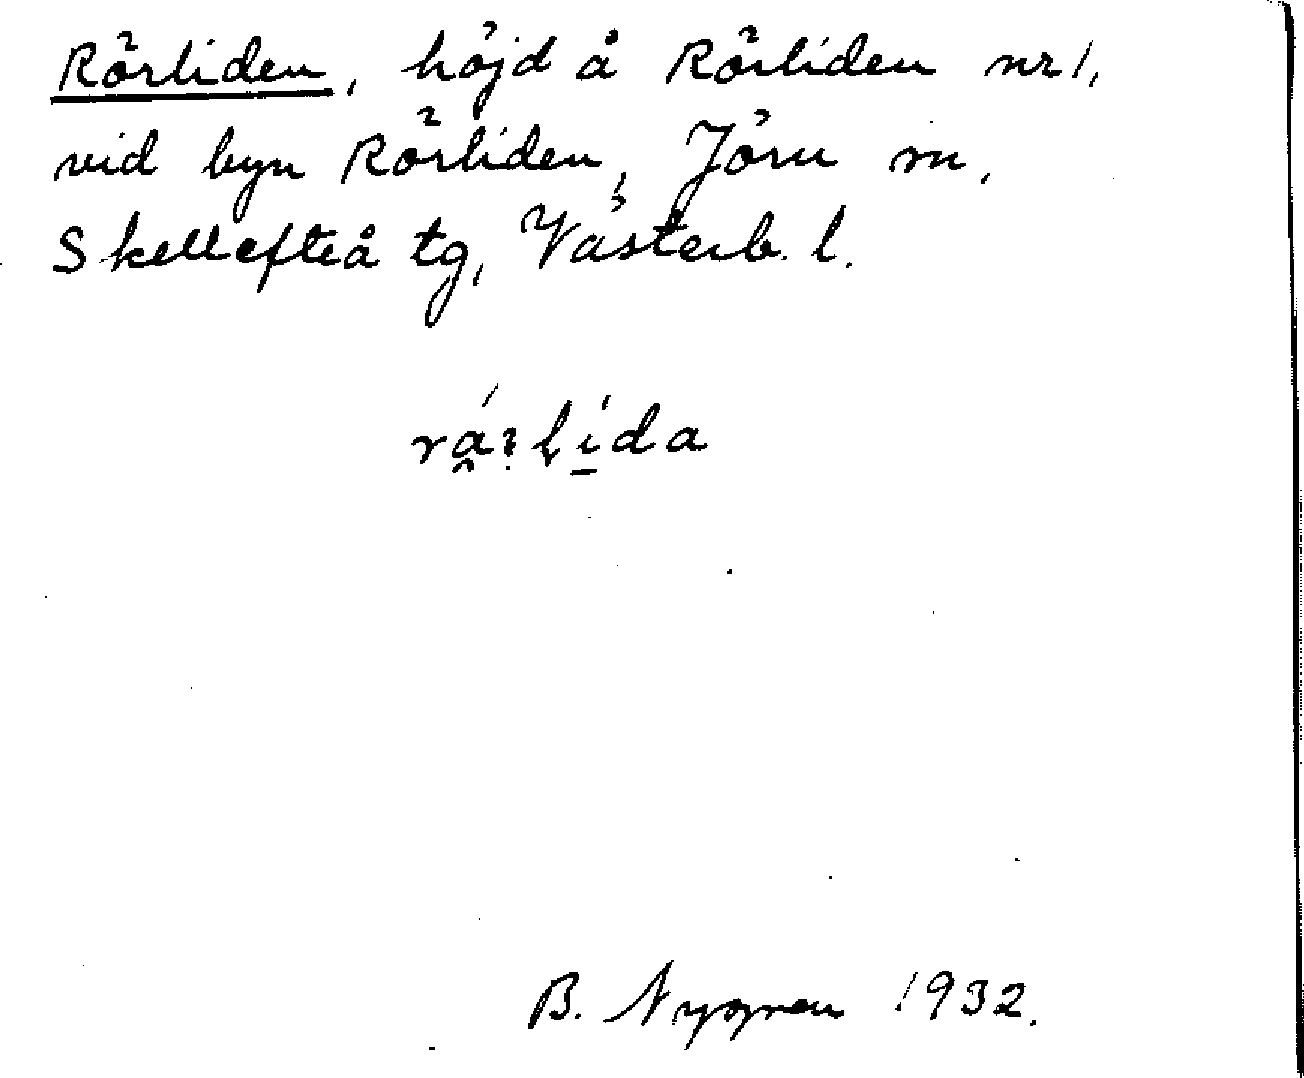 Rörliden, höjd å Rörliden nr 1,
vid byn Rörliden, Jörn sn,
Skellefteå tg, Västerb. l.
B. Nygren 1932.